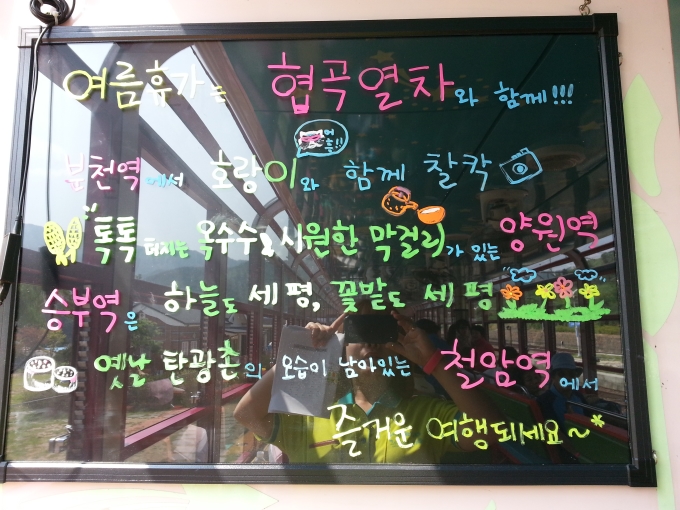 여름휴가는 협곡열차와 함께!!!
어흥!!
분천역에서 호랑이와 함께 찰칵
톡톡 터지는 옥수수&시원한 막걸리가 있는 양원역
승부역은 하늘도 세평, 꽃밭도 세평
옛날 탄광촌의 모습이 남아있는 철암역에서
즐거운 여행되세요~*